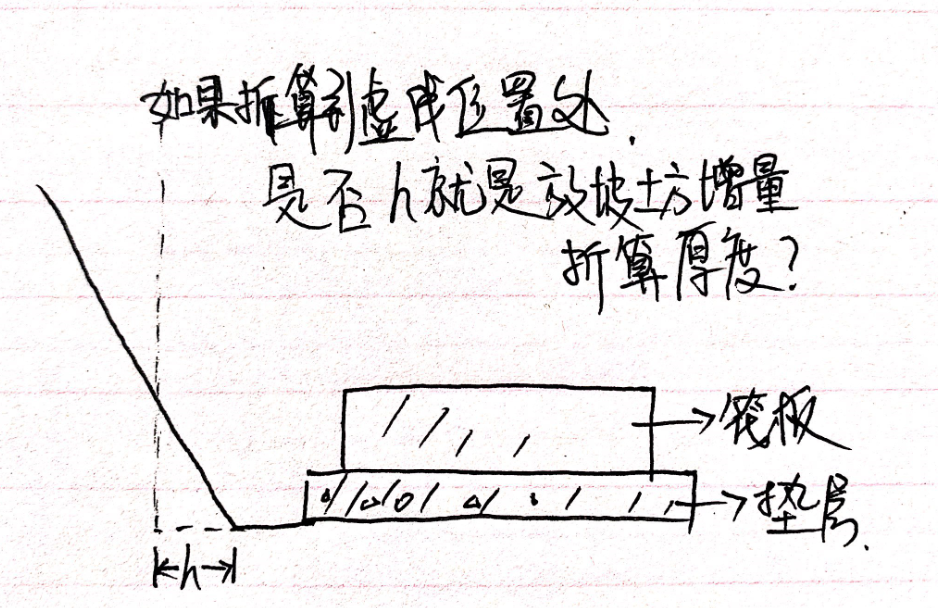 如果折算到虚线位置处,
是否h就是放坡土方增量
折算厚度?
筏板
垫层.
h